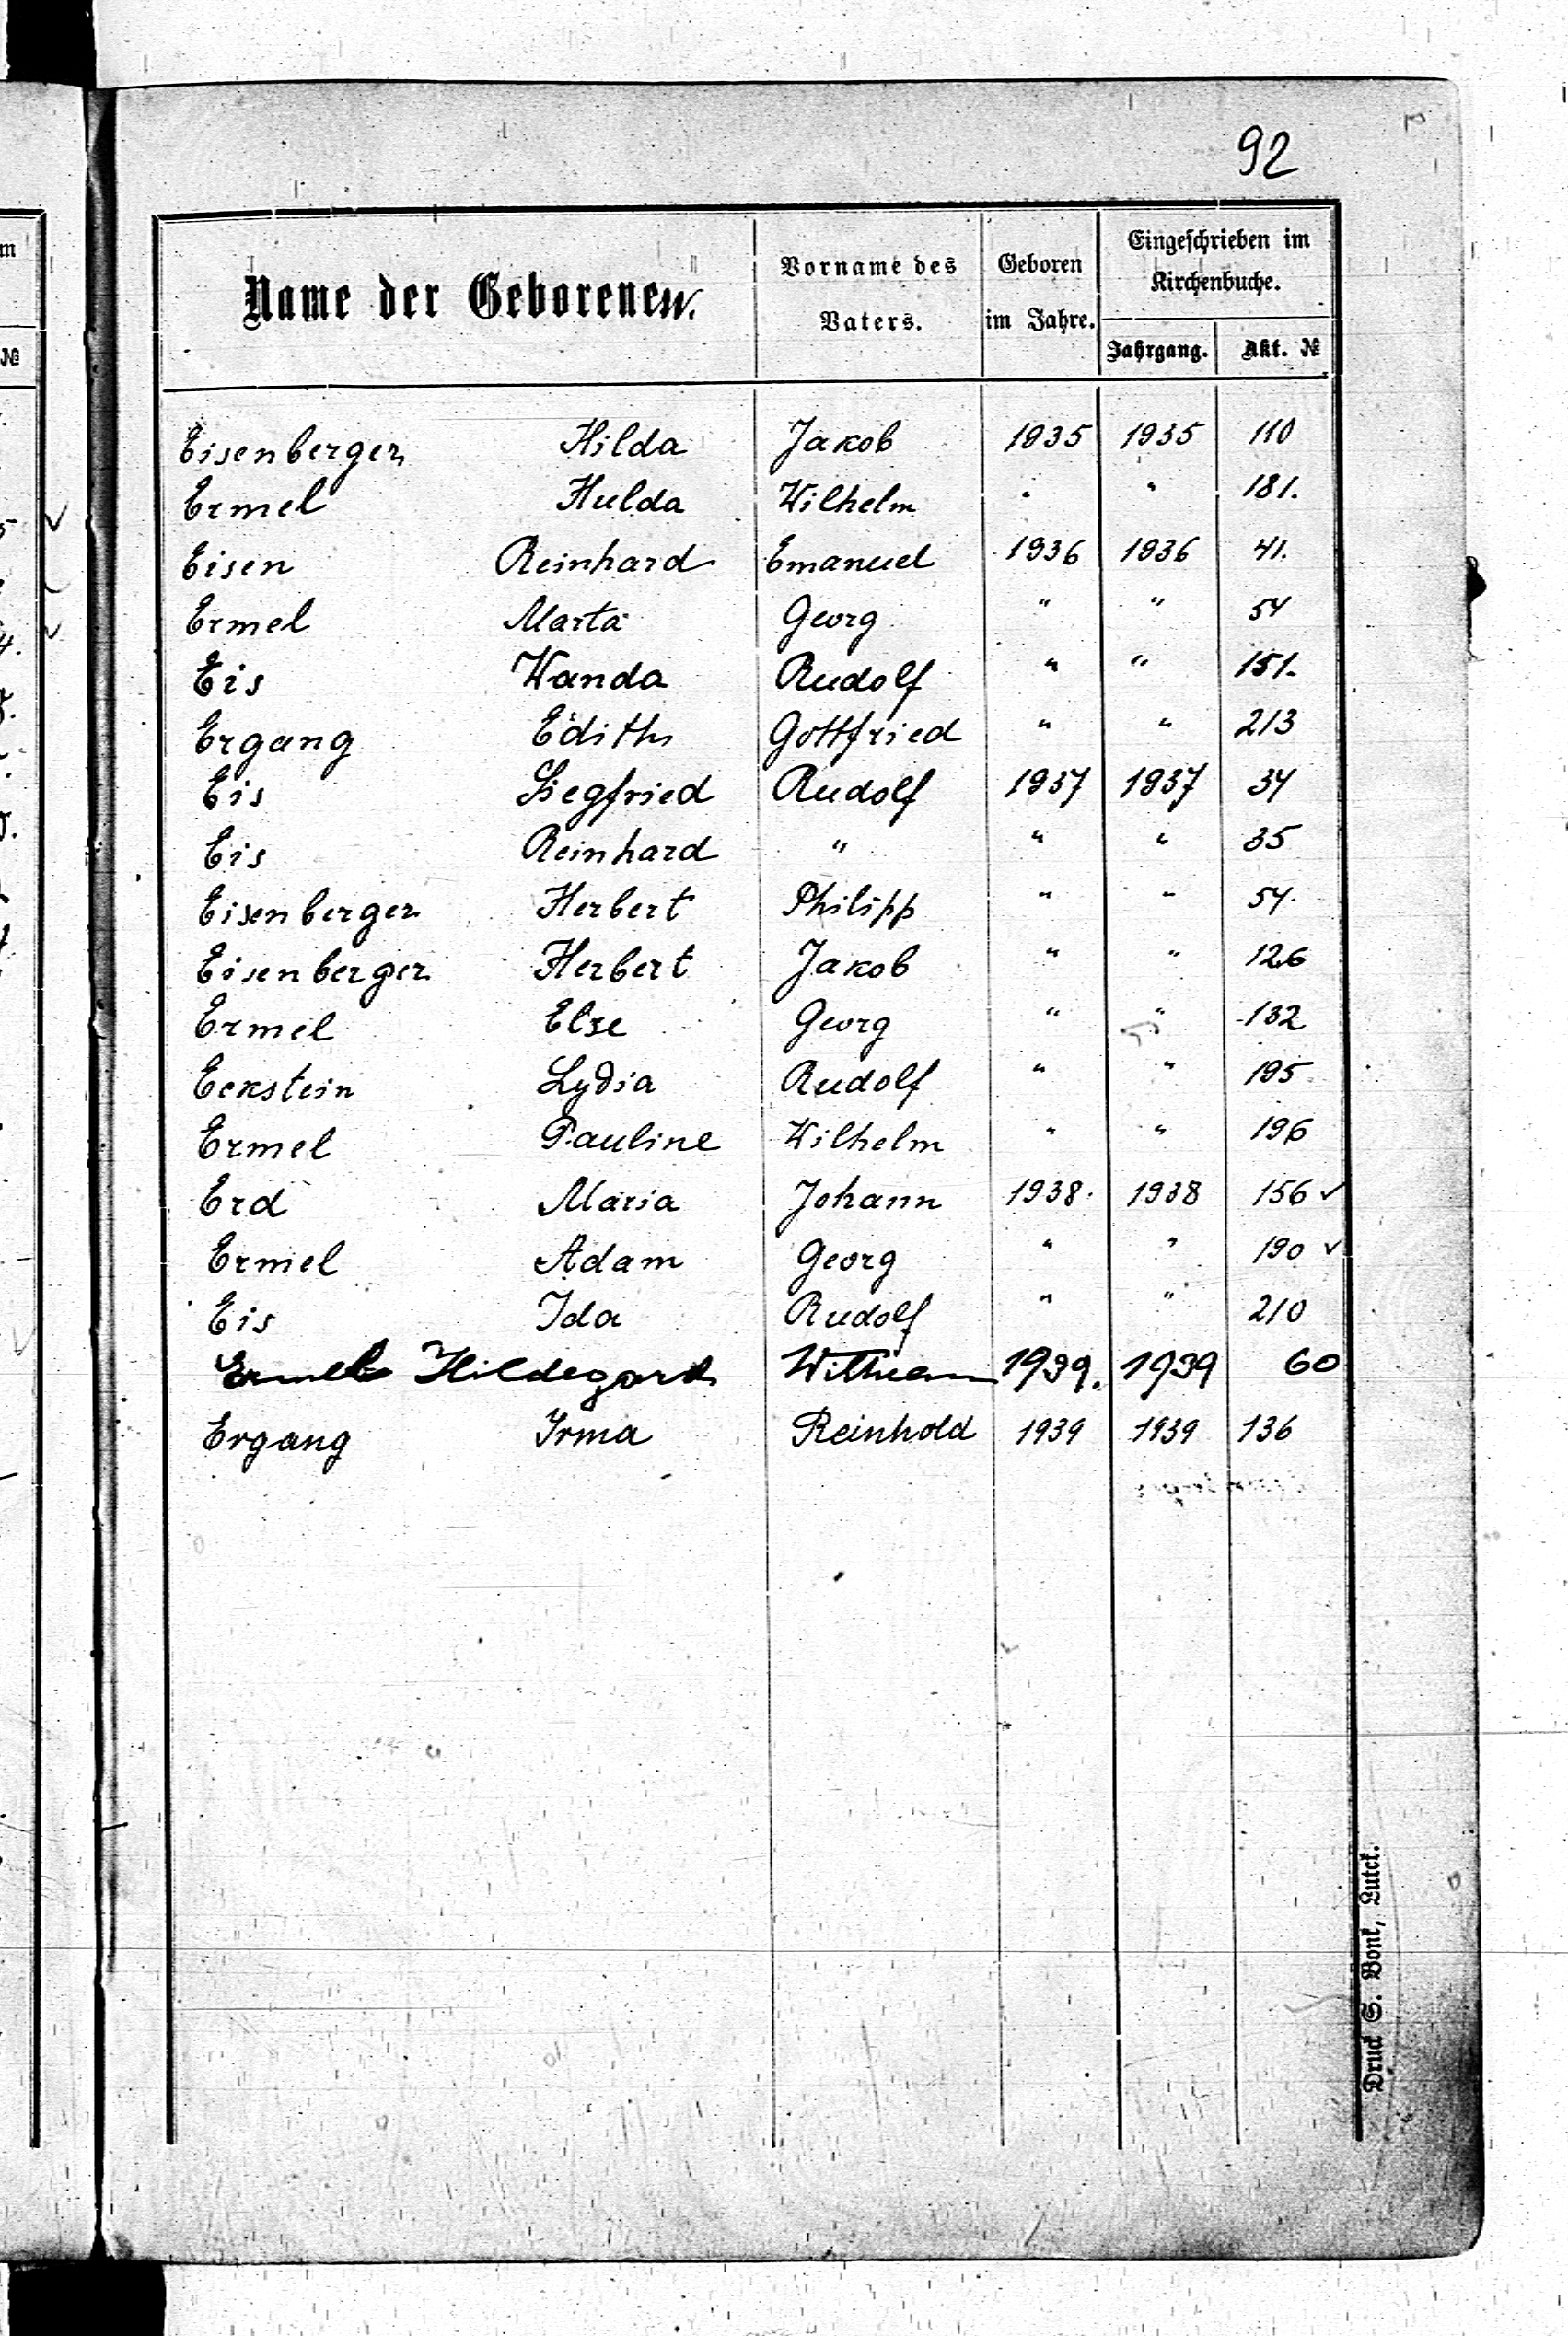 92
Name der Geborenen.
Vorname des Vaters.
Geboren im Jahre.
Eingeschrieben im Kirchenbuche.
Jahrgang.
Akt. №
Eisenberger Hilda Jakob 1935 1935 110
Ermel Hulda Wilhelm " " 181.
Eisen Reinhard Emanuel 1936 1936 41.
Ermel Marta Georg " " 54
Eis Wanda Rudolf " " 151.
Ergang Edith Gottfried " " 213
Eis Siegfried Rudolf 1937 1937 34
Eis Reinhard " " " 35
Eisenberger Herbert Philipp " " 54.
Eisenberger Herbert Jakob " " 126
Ermel Else Georg " " 132
Eckstein Lydia Rudolf " " 195
Ermel Pauline Wilhelm " " 196
Erd Maria Johann 1938. 1938 156 ✓
Ermel Adam Georg " " 190 ✓
Eis Ida Rudolf " " 210
Ermel Hildegard Wilhelm 1939. 1939 60
Ergang Irma Reinhold 1939 1939 136
Druck S. Bonk, Lutck.